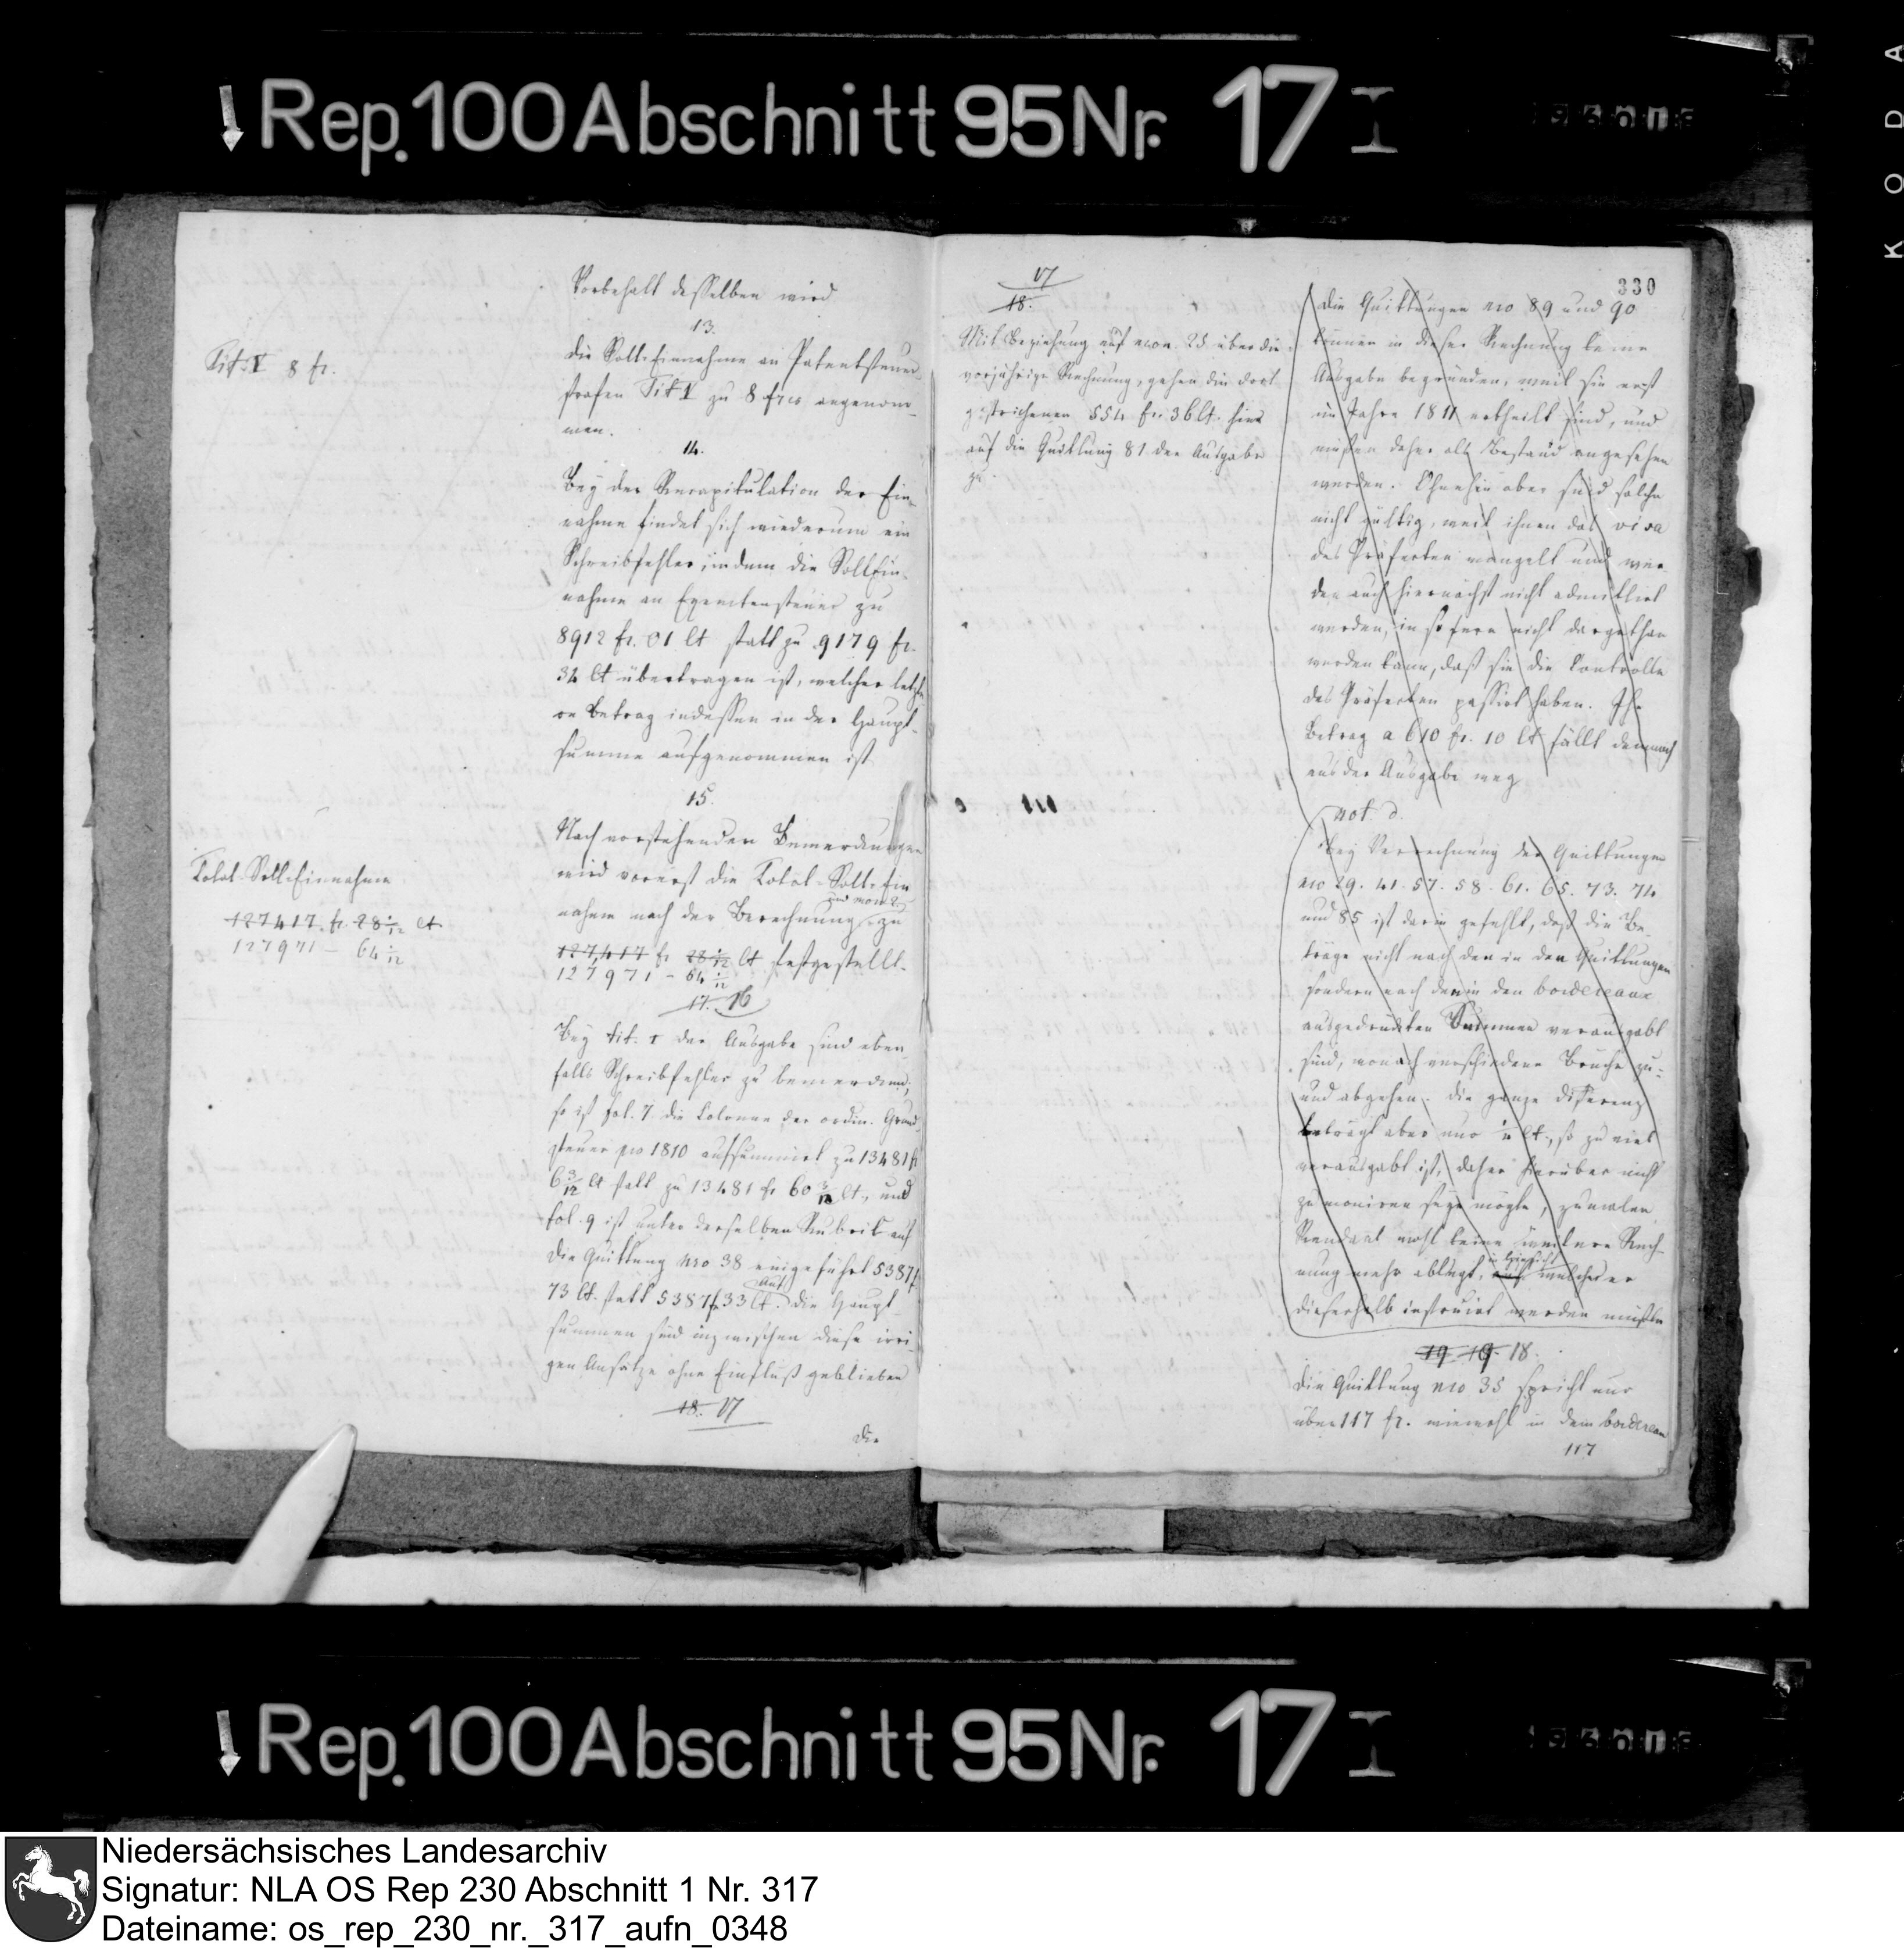 Rep. 100 Abschnitt 95 Nr. 17 I
KODA
Vorbehalt desselben wird
13.
Tit. V 8 fr.
Die Soll-Einnahme an Patentsteuer
strafen Tit. V zu 8 frcs angenom-
men.
14.
Bey der Recapitulation der Ein-
nahme findet sich wiederum ein
Schreibfehler, indem die Soll Ein-
nahme an Exemtensteuer zu
8912 fr. 01 Ct statt zu 9179 fr.
34 Ct übertragen ist, welcher letzte-
re Betrag indessen in der Haupt-
summe aufgenommen ist
15.
Nach vorstehenden Bemerkungen
wird vorerst die Total-Soll-Ein
nahme nach der Berechnung und mon 2 zu
127,417 fr 28 1/12 Ct festgestellt.
127971 - 64 1/12
Total-Soll-Einnahme
127417 fr. 28 1/12 Ct.
127971 - 64 1/12
17. 16
Bey tit. I der Ausgabe sind eben-
falls Schreibfehler zu bemerken;
so ist fol. 7 die Colonne der ordin. Grund-
steuer pro 1810 aufsummirt zu 13481 fr
6 3/12 Ct statt zu 13481 fr 60 3/12 Ct., und
fol. 9 ist unter derselben Rubrik auf
die Quittung nro 38 eingeführt 5387 f
73 Ct. statt 5387 f 33 Ct. Auf die Haupt-
summen sind inzwischen diese irri-
gen Ansätze ohne Einfluß geblieben
18. 17
Die
17
18.
Mit Beziehung auf mon. 25 über die
vorjährige Rechnung, gehen die dort
gestrichenen 554 fr. 36 Ct. hier
auf die Quittung 81 der Ausgabe
zu.
330
Die Quittungen nro 89 und 90
können in dieser Rechnung keine
Ausgabe begründen, weil sie erst
im Jahre 1811 ertheilt sind, und
müßen daher als Bestand angesehen
werden. Ohnehin aber sind solche
nicht gültig, weil ihnen das visa
des Präfecten mangelt und wer-
den auch hiernächst nicht admittirt
werden, in so fern nicht dargethan
werden kann, daß sie die Controlle
des Präfecten passirt haben. Ihr
Betrag a 610 fr. 10 Ct fällt demnach
aus der Ausgabe weg
not. d.
Bey Berechnung der Quittungen
nro 29. 41. 57. 58. 61. 65. 73. 74
und 85 ist darin gefehlt, daß die Be-
träge nicht nach den in den Quittungen
sondern nach den in den bordereaux
ausgedruckten Summen verausgabt
sind, wonach verschiedene Brüche zu-
und abgehen. Die ganze Differenz
beträgt aber nur Ct., so zu viel
verausgabt ist, daher hierüber nicht
zu moniren seyn mögte, zumalen
Rendant wohl keine weitere Rech-
nung mehr ablegt, auf in Hinsicht welcher er
dieserhalb instruirt werden müßte
19 19. 18.
Die Quittung nro 35 spricht nur
über 117 fr. wiewohl in dem bordereau
117
Rep. 100 Abschnitt 95 Nr. 17 I
Niedersächsisches Landesarchiv
Signatur: NLA OS Rep 230 Abschnitt 1 Nr. 317
Dateiname: os_rep_230_nr._317_aufn_0348